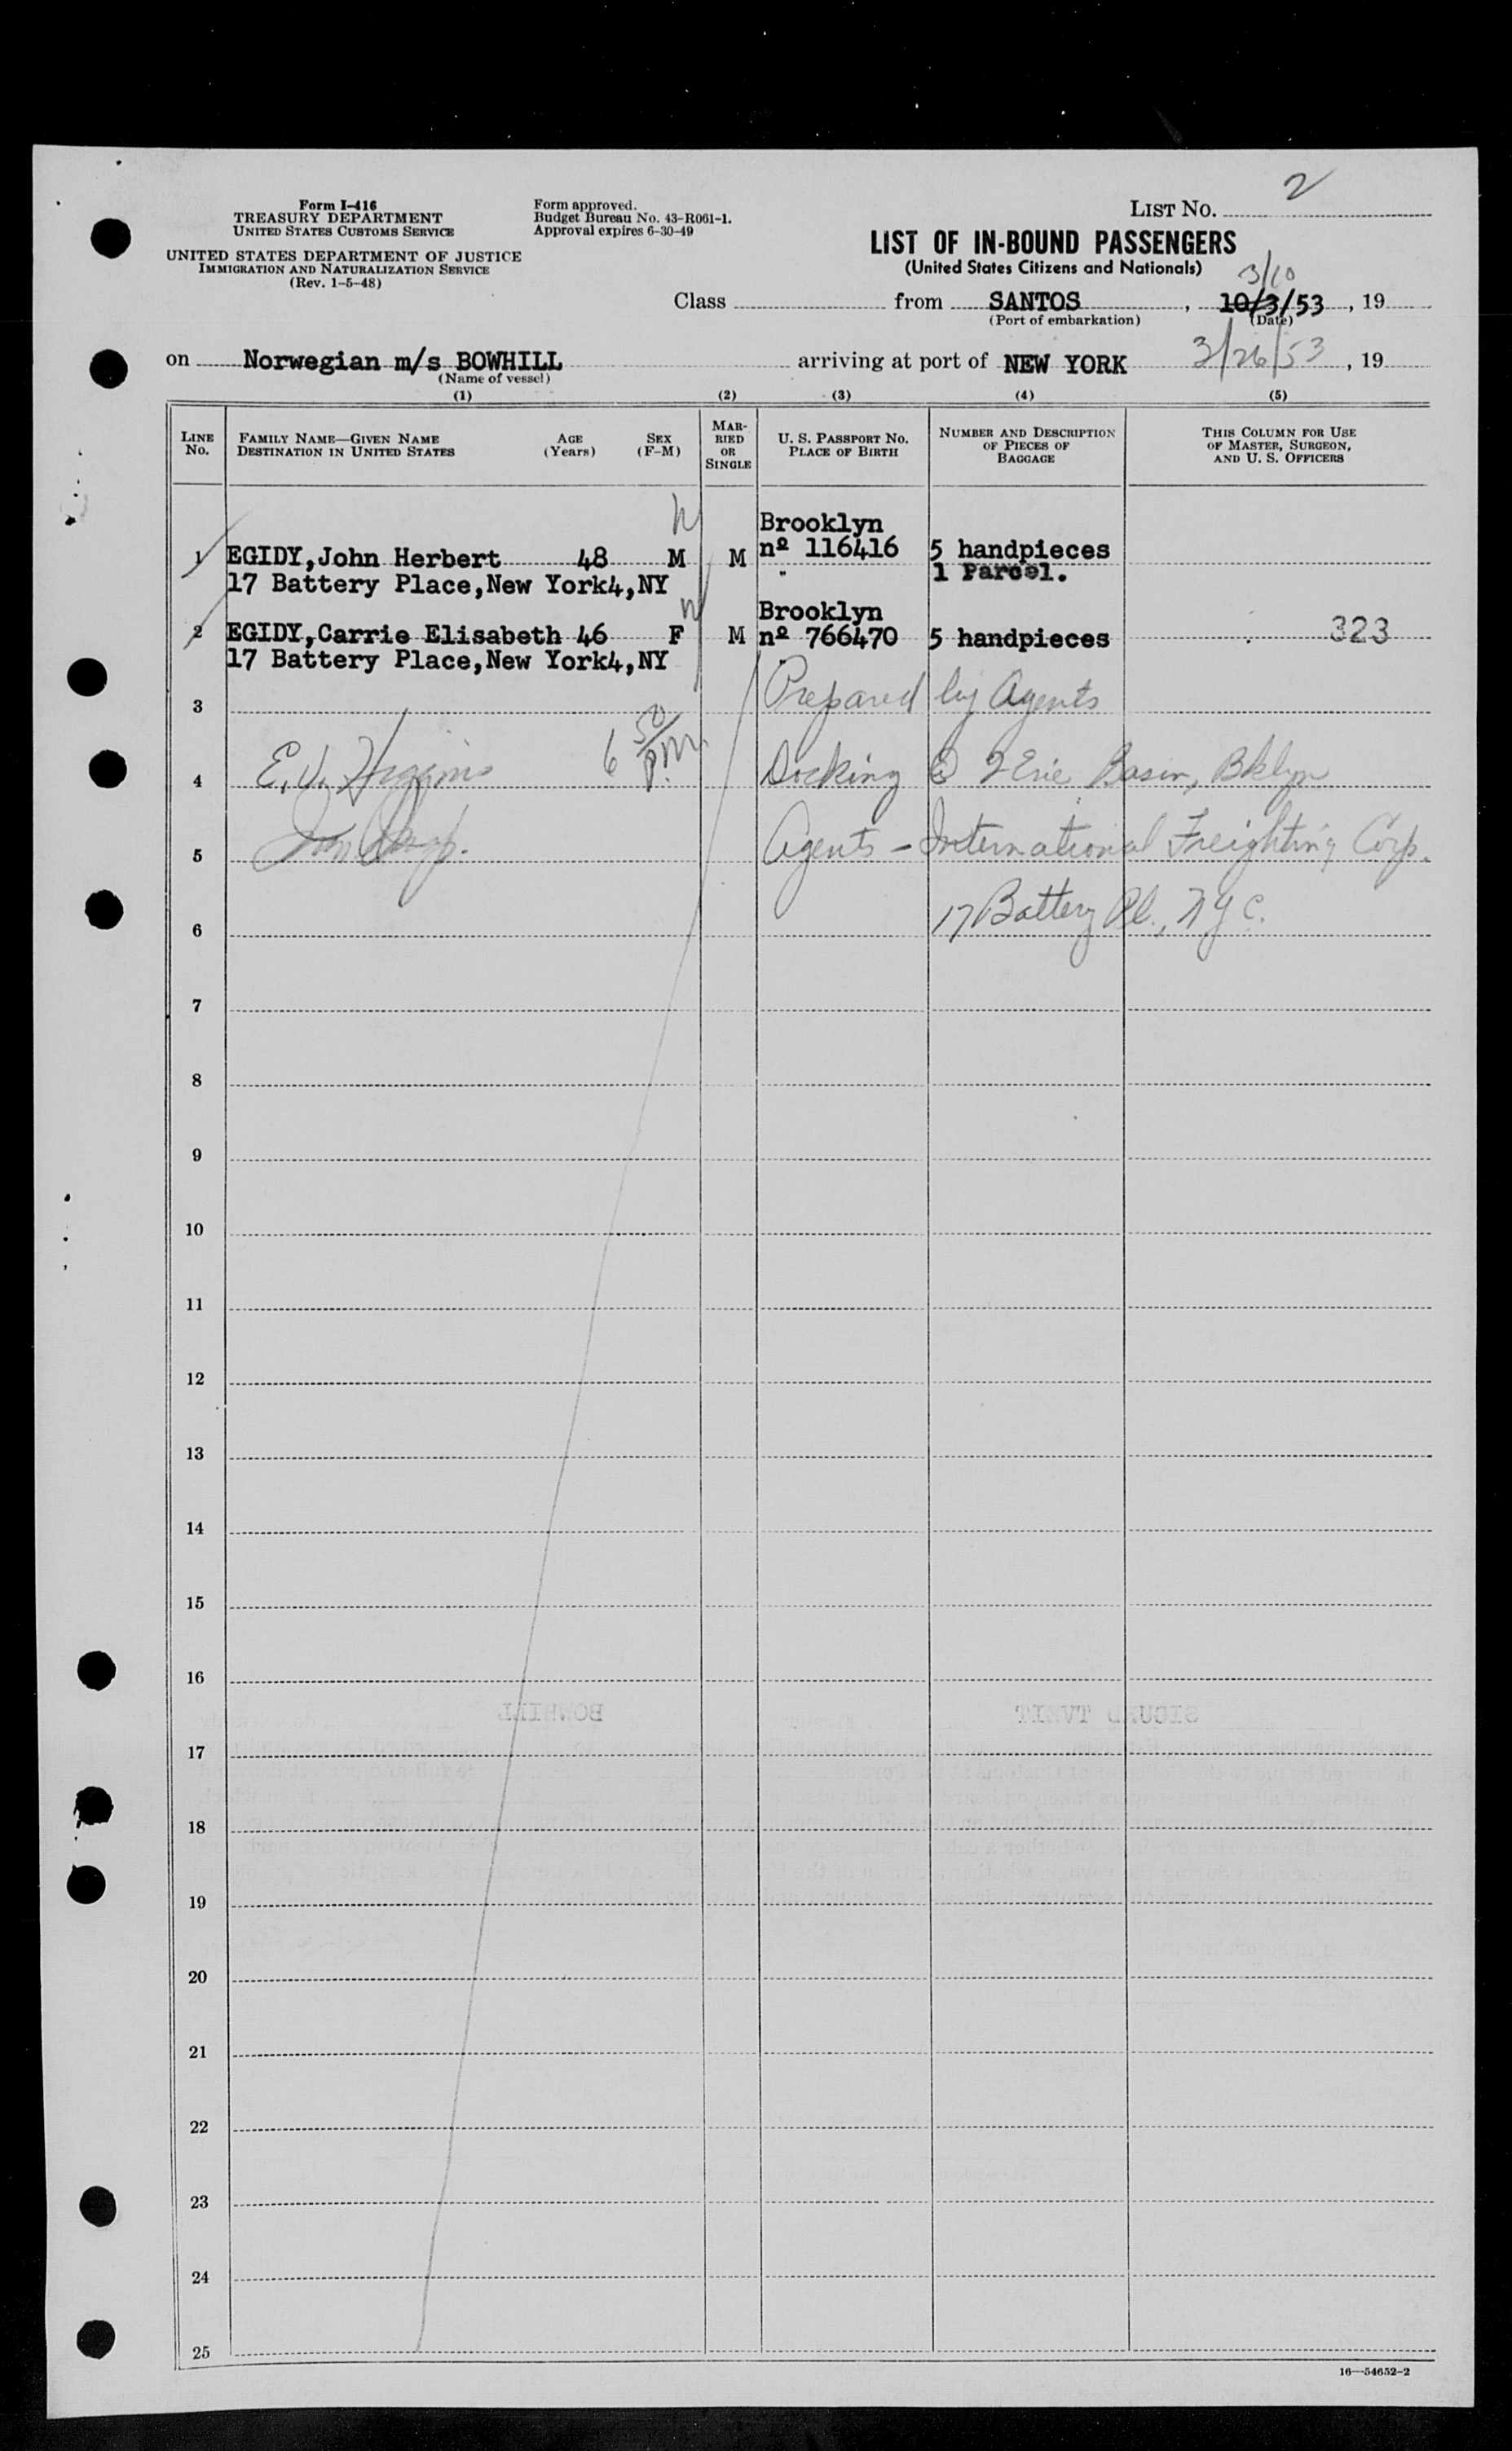 Form I-416
TREASURY DEPARTMENT
UNITED STATES CUSTOMS SERVICE
UNITED STATES DEPARTMENT OF JUSTICE
IMMIGRATION AND NATURALIZATION SERVICE
(Rev. 1-5-48)
Form approved.
Budget Bureau No. 43-R061-1.
Approval expires 6-30-49
LIST No. 2
LIST OF IN-BOUND PASSENGERS
(United States Citizens and Nationals)
3/10
Class from SANTOS, 10/3/53, 19
(Port of embarkation) (Date)
on Norwegian m/s BOWHILL arriving at port of NEW YORK 3/26/53, 19
(Name of vessel)
(1) (2) (3) (4) (5)
LINE No.
FAMILY NAME—GIVEN NAME
DESTINATION IN UNITED STATES
AGE (Years)
SEX (F-M)
MARRIED OR SINGLE
U. S. PASSPORT No.
PLACE OF BIRTH
NUMBER AND DESCRIPTION OF PIECES OF BAGGAGE
THIS COLUMN FOR USE OF MASTER, SURGEON, AND U. S. OFFICERS
Brooklyn
1 EGIDY, John Herbert 48 M M nº 116416 5 handpieces
17 Battery Place, New York4, NY 1 Parcel.
Brooklyn
2 EGIDY, Carrie Elisabeth 46 F M nº 766470 5 handpieces 323
17 Battery Place, New York4, NY
3 Prepared by Agents
4 E. J. Higgins 6 50/pm. Docking @ Erie Basin, Bklyn
5 Agents - International Freighting Corp.
6 17 Battery Pl., NYC.
7
8
9
10
11
12
13
14
15
16
BOWHILL SIGURD TVEIT
17
18
19
20
21
22
23
24
25
16—54652-2